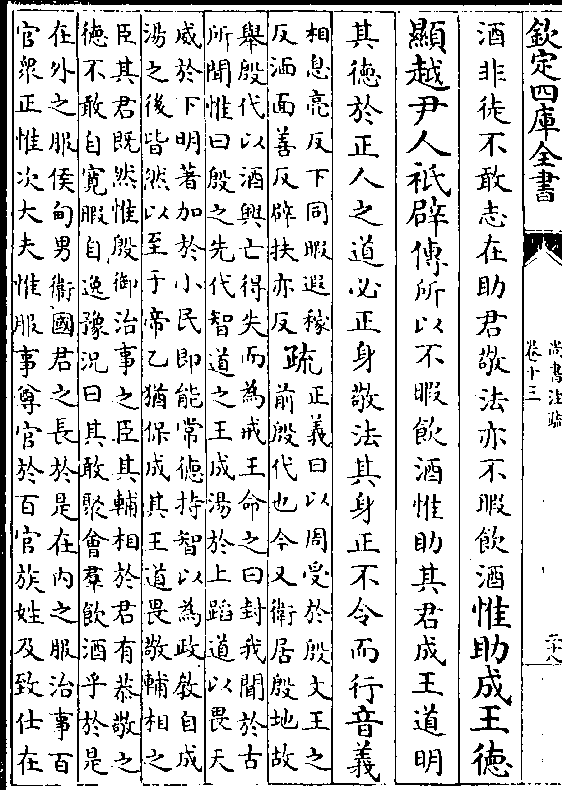 欽定四庫全書
尚書注疏
卷十三
酒非徒不敢志在助君敬法亦不暇飲酒惟助成王德
顯越尹人祗辟傳所以不暇飲酒惟助其君成王道明
其德於正人之道必正身敬法其身正不令而行音義
相息亮反下同暇遐稼
反湎面善反辟扶亦反
疏
正義曰以周受於殷文王之
前殷代也今又衛居殷地故
舉殷代以酒興亡得失而為戒王命之曰封我聞於古
所聞惟曰殷之先代智道之王成湯於上蹈道以畏天
威於下明著加於小民即能常德持智以為政教自成
湯之後皆然以至于帝乙猶保成其王道畏敬輔相之
臣其君既然惟殷御治事之臣其輔相於君有恭敬之
德不敢自寬暇自逸豫況曰其敢聚會羣飲酒乎於是
在外之服侯甸男衛國君之長於是在內之服治事百
官衆正惟次大夫惟服事尊官於百官族姓及致仕在